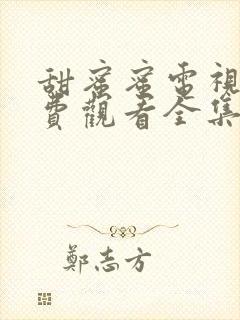 甜蜜蜜電視
費觀看全集
鄭志方